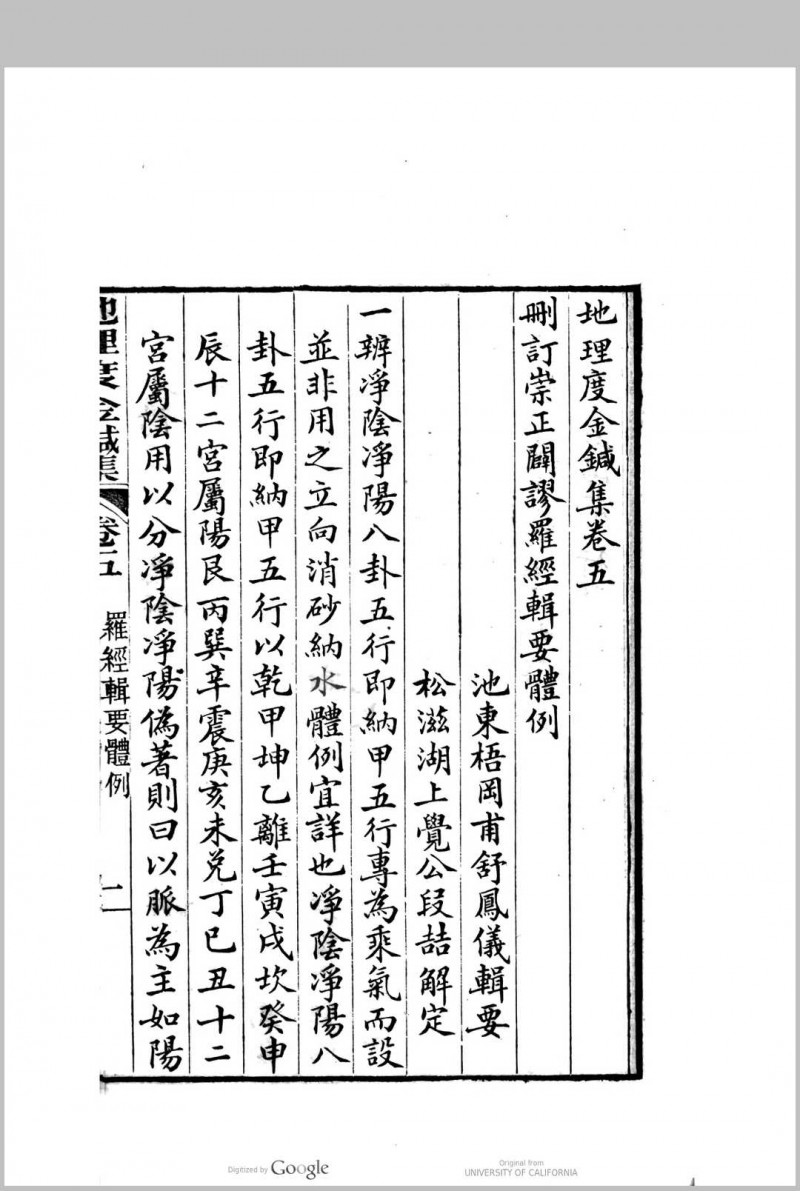 地理度金鍼集卷五
刪訂崇正闢謬羅經輯要體例
池東梧岡甫舒鳳儀輯要
松滋湖上覺公段喆解定
一辨凈陰凈陽八卦五行即納甲五行專為乘氣而設
並非用之立向消砂納水體例宜詳也凈陰凈陽八
卦五行即納甲五行以乾甲坤乙離壬寅戌坎癸申
辰十二宮屬陽艮丙巽辛震庚亥未兌丁巳丑十二
宮屬陰用以分凈陰凈陽偽著則曰以脈為主如陽
地理度金鍼集 卷五 羅經輯要體例 一
Digitized by Google
Original from
UNIVERSITY OF CALIFORNIA